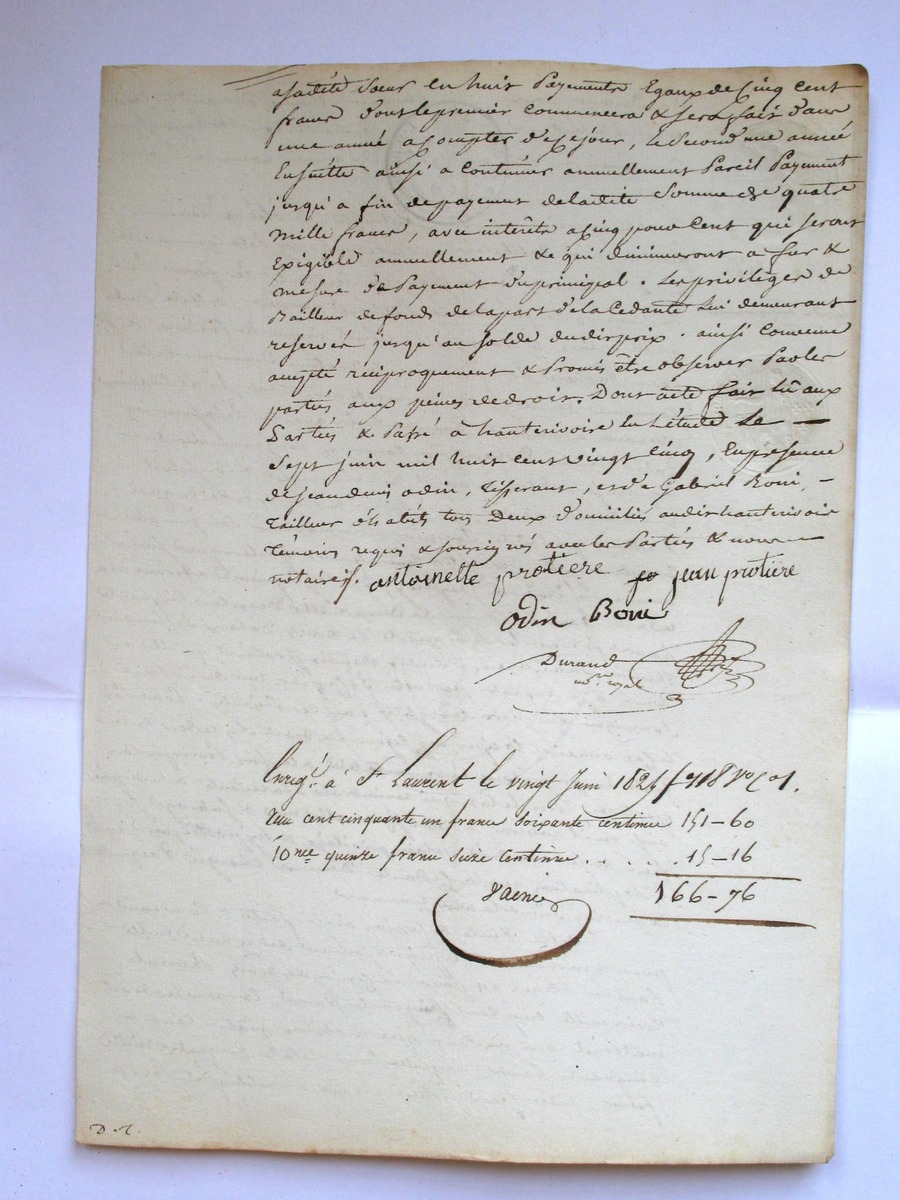 a sadite Soeur en huit Payements Egaux de Cinq Cent
francs dont le premier commencera & sera fait dans
une année a Compter de Ce jour, le second une année
Ensuitte ainsi a Continuer annuellement Pareil Payement
jusqu'a fin de payement de ladite Somme de quatre
mille francs, avec intérêts a Cinq pour Cent qui seront
Exigible annuellement & qui diminueront a fur &
mesure de Payement du principal. Les privilèges de
Bailleur de fonds de la part de la Cedante lui demeurant
reservés jusqu'au solde du dit prix. ainsi Convenu
accepté réciproquement & Promis être observer Par les
parties aux peines de droit. Dont acte fait lû aux
Parties & Passé à hauterivoire en l'étude Le —
Sept juin mil huit cent vingt Cinq, En présence
de jean denis odin, tisserant, et de Gabriel Boni, -
Tailleur d'habits tous Deux domiciliés audit hauterivoir
témoins requis & soussignés avec les Parties & nous —
notaire. antoinette protiere jean protiere
odin Boni
Durand
no.re royal
Enreg.é à St Laurent le vingt Juin 1825 f 118 Vo C 1.
Reçu cent cinquante un francs soixante centimes 151-60
10me quinze francs seize Centimes . . . . . 15-16
166-76
D. T.